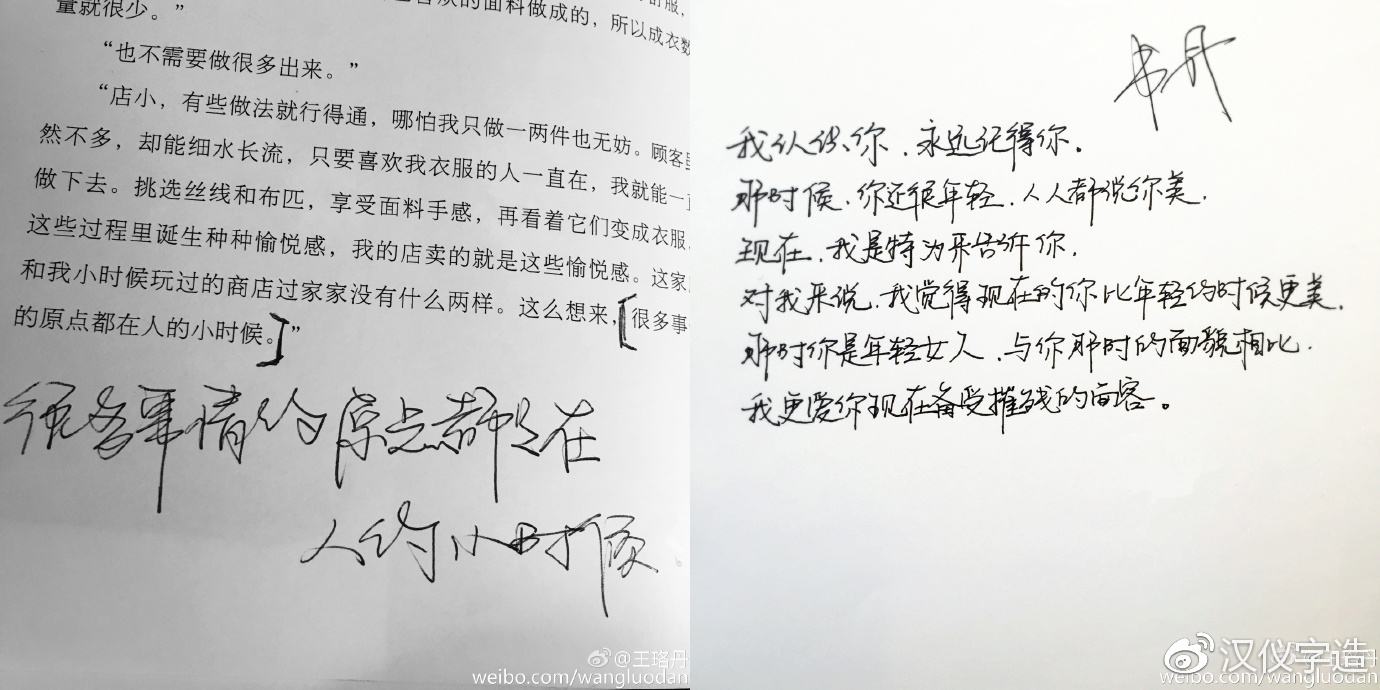 量就很少。”
的面料做成的，所以成衣数
“也不需要做很多出来。”
“店小，有些做法就行得通，哪怕我只做一两件也无妨。顾客
然不多，却能细水长流，只要喜欢我衣服的人一直在，我就能一
做下去。挑选丝线和布匹，享受面料手感，再看着它们变成衣服，
这些过程里诞生种种愉悦感，我的店卖的就是这些愉悦感。这家
和我小时候玩过的商店过家家没有什么两样。这么想来，[很多事
的原点都在人的小时候。]”
很多事情的原点都是在
人的小时候.
@王珞丹
weibo.com/wangluodan
我认识你，永远记得你。
那时候，你还很年轻，人人都说你美，
现在，我是特为来告诉你，
对我来说，我觉得现在的你比年轻的时候更美，
那时你是年轻女人，与你那时的面貌相比，
我更爱你现在备受摧残的面容。
汉仪字造
weibo.com/wangluodan